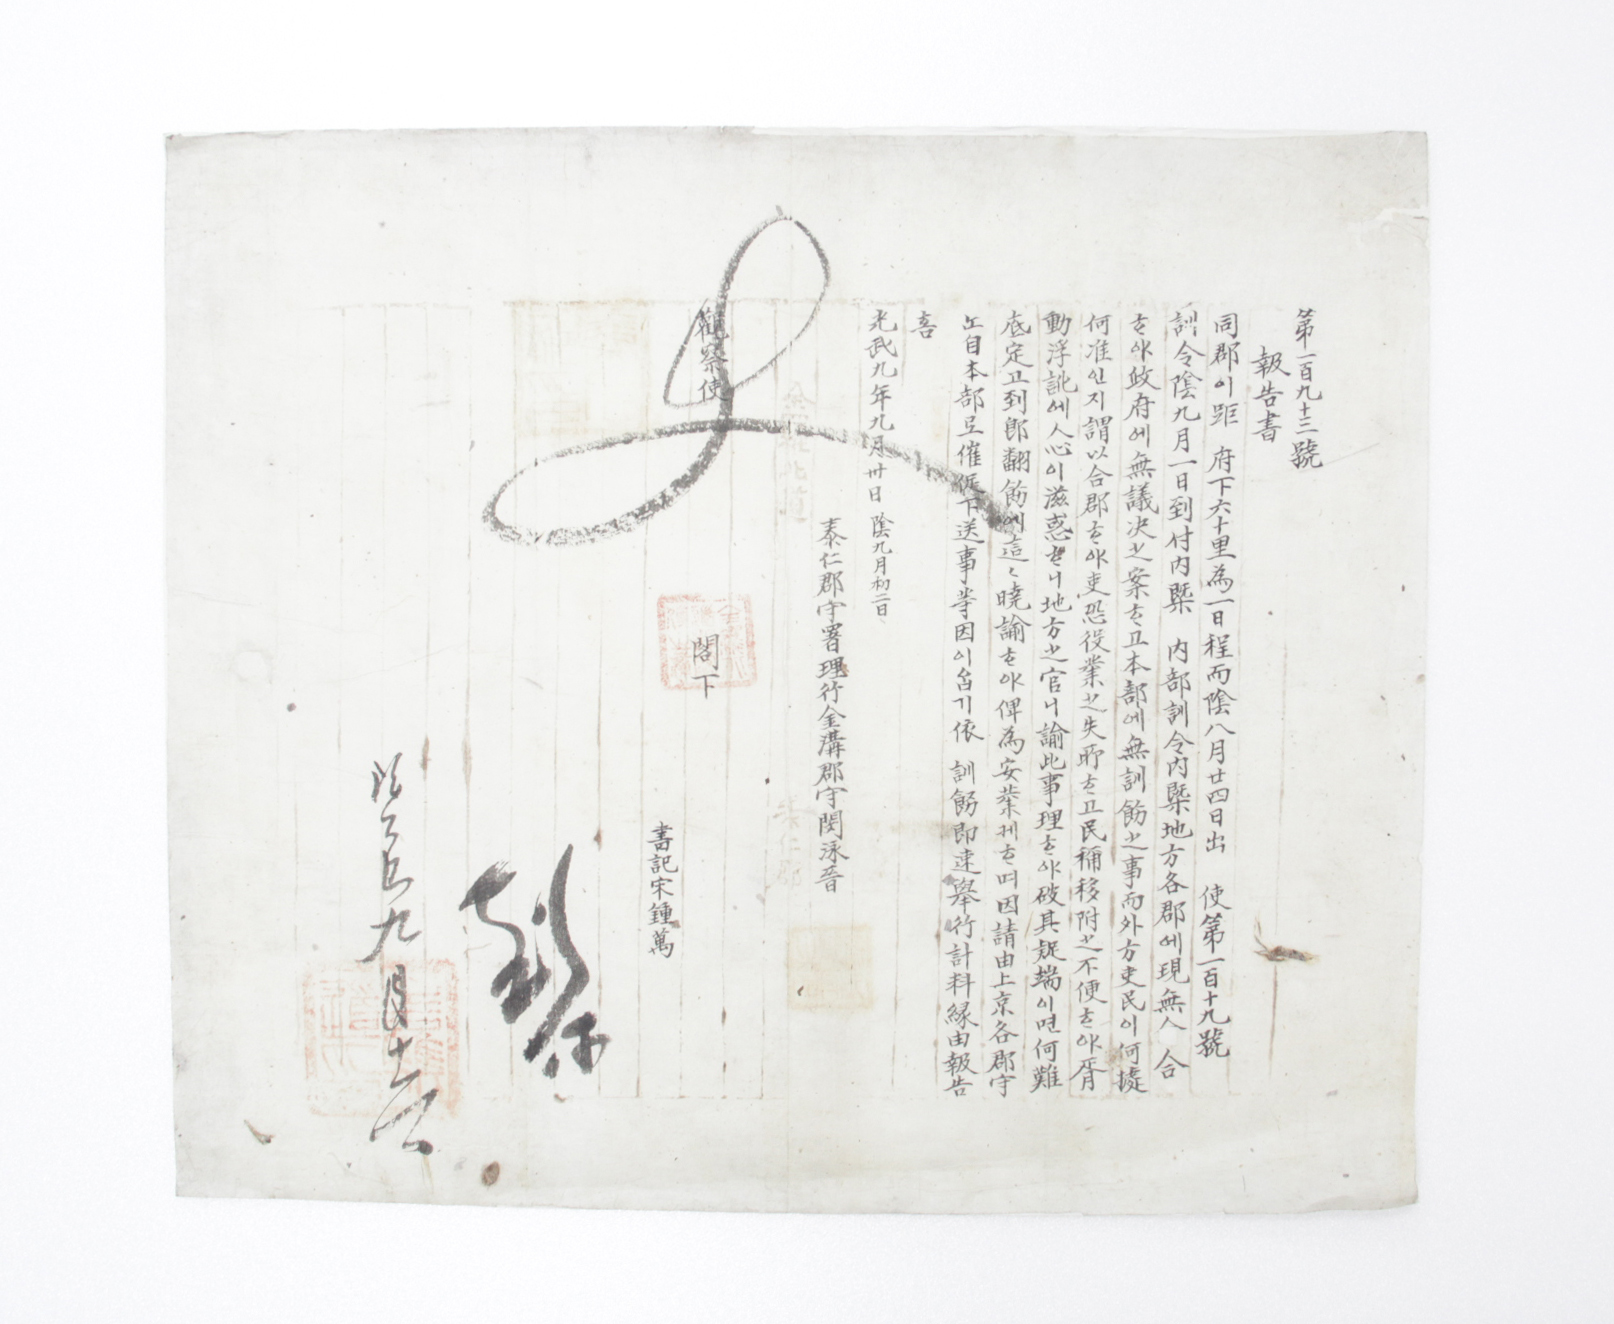 第一百九十三號
報告書
同郡이距 府下六十里為一日程而陰八月廿四日出 使第一百十九號
訓令陰九月一日到付內槩 內部訓令內槩地方各郡에現無人 合
ᄒᆞ야政府에無議決之案ᄒᆞ고本部에無訓飭之事而外方吏民이何據
何准인지謂以合郡ᄒᆞ야吏恐役業之失所ᄒᆞ고民稱移附之不便ᄒᆞ야胥
動浮訛에人心이滋惑ᄒᆞ니地方之官니諭此事理ᄒᆞ야破其疑端이면何難
底定고到卽翻飭에這〻曉諭ᄒᆞ야俾為安業케ᄒᆞ며因請由上京各郡守
노自本部로催促下送事等因이옵기依 訓飭卽速擧行計料緣由報告
喜
光武九年九月卅日 陰九月初二日
泰仁郡守署理行金溝郡守閔泳晉
觀察使 閣下
書記宋鍾萬
九月十六